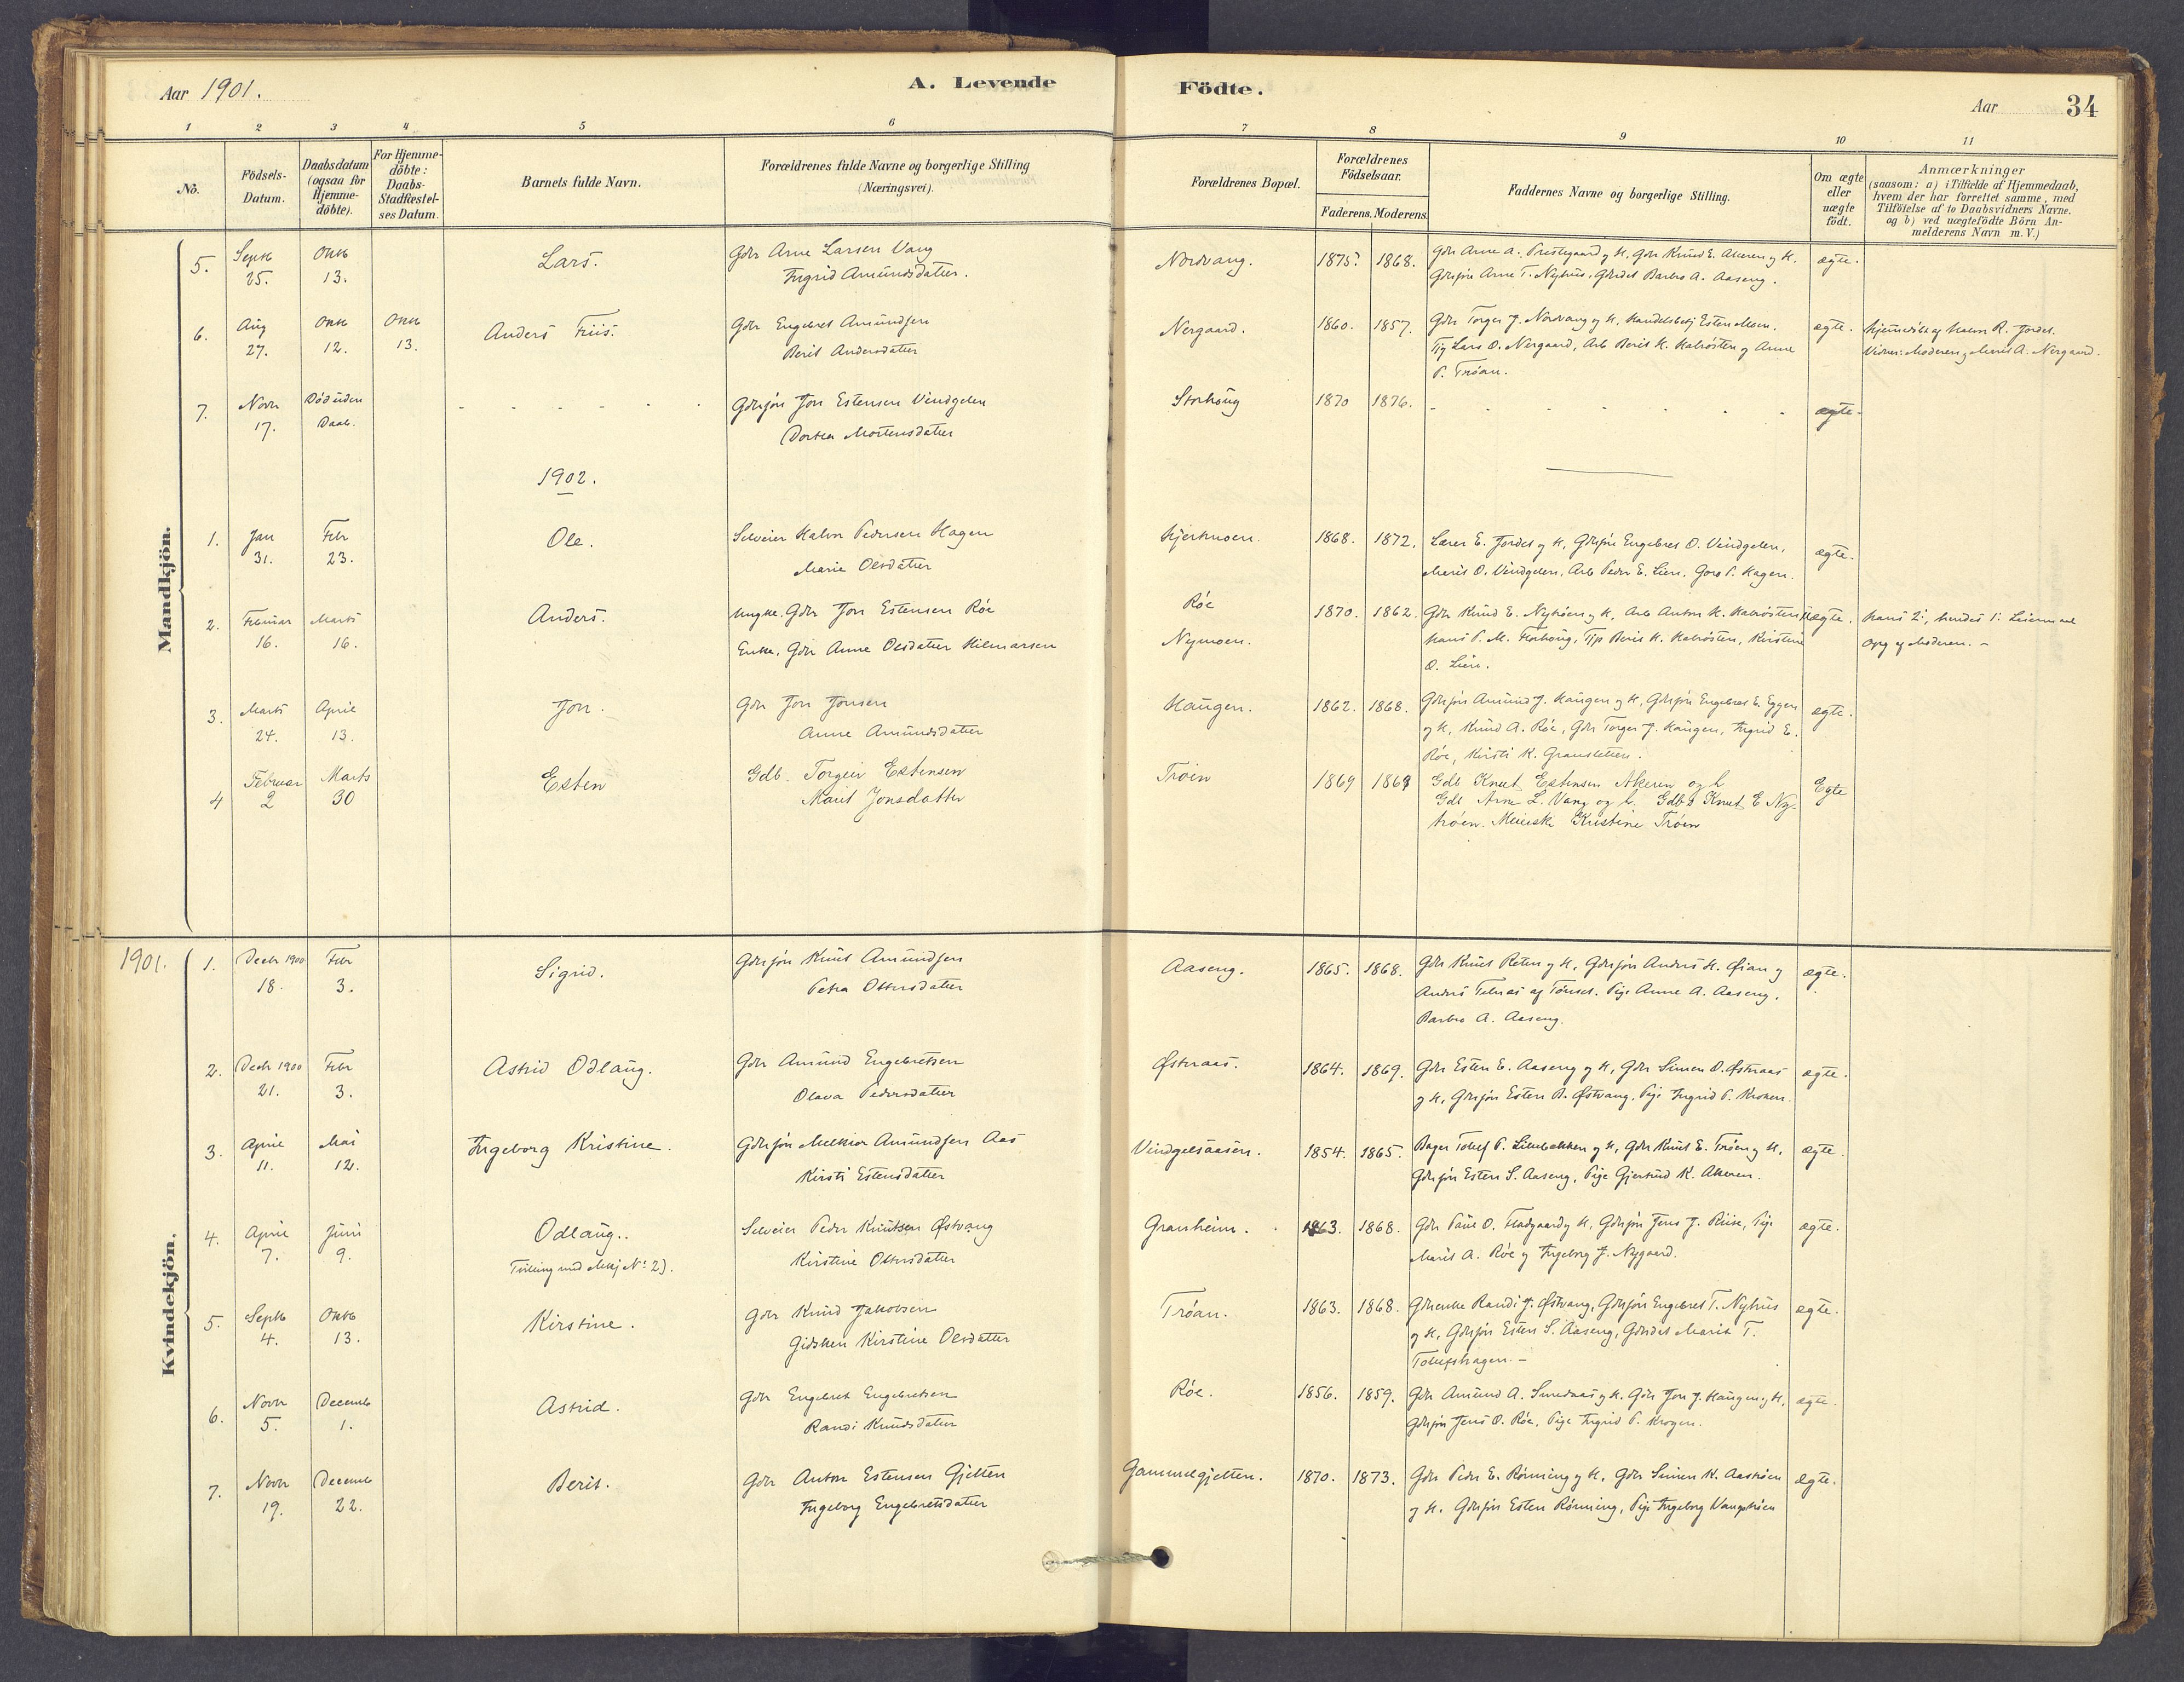 Aar 1901.
A. Levende
Födte.
Aar
34
1 2 3 4 5 6 7 8 9 10 11
No.
Födsels-
Datum.
Daabsdatum
(ogsaa for
Hjemme-
döbte).
For Hjemme-
döbte:
Daabs-
Stadfæstel-
ses Datum.
Barnets fulde Navn.
Forældrenes fulde Navne og borgerlige Stilling
(Næringsvei).
Forældrenes Bopæl.
Forældrenes
Födselsaar.
Faderens. Moderens.
Faddernes Navne og borgerlige Stilling.
Om ægte
eller
uægte
födt.
Anmærkninger
(saasom: a) i Tilfælde af Hjemmedaab,
hvem der har forrettet samme, med
Tilföielse af to Daabsvidners Navne.
og b) ved uægtefödte Börn An-
melderens Navn m. V.)
Mandkjön.
5.
Septb
25.
Oktb
13.
Lars.
Gdbr Arne Larsen Vang
Ingrid Amundsdatter.
Nordvang.
1875. 1868.
Gdbr Arne A. Prestegaard og H, Gdbr Knud E. Akeren og H.
Gdbsøn Arne T. Nyhus, Gbrdat Barbro A. Aaseng.
ægte.
6.
Aug
27.
Oktb
12.
Oktb
13.
Anders Friis.
Gdbr Engebret Amundsen
Berit Andersdatter
Nergaard.
1860. 1857.
Gdbr Torger J. Nordvang og H, Handelsbetj Esten Moen.
Tjg Lars O. Nergaard, Arb Berit H. Kalrösten og Anne
P. Tröan.
ægte.
Hjemmedöbt af Halvor R. Jordet.
Vidner: Moderen og Marit A. Nergaard.
7.
Novbr
17.
Död uden
Daab.
Gdbsøn Jon Estensen Vindgelen
Dortea Mortensdatter
Storhoug
1870 1876.
ægte.
1902.
1.
Jan
31.
Febr
23.
Ole.
Selveier Halvor Pedersen Hagen
Marie Olesdatter
Hjertmoen.
1868. 1872.
Lærer E. Jordet og H, Gdbsøn Engebret O. Vindgelen,
Marit O. Vindgelen, Arb Peder E. Lien, Goro P. Hagen.
ægte.
2.
Februar
16.
Marts
16.
Anders.
Ungk. Gdbr Jon Estensen Röe
Enke, Gdbr Anne Olesdatter Hilmarsen
Röe
Nymoen.
1870. 1862.
Gdbr Knud E. Nytröen og H, Arb Anton H. Kalrösten
Hans P. M. Storhoug, Tjp Berit H. Kalrösten, Kirstine
O. Lien.
uægte.
Hans 2', hendes 1' Leiermaal
Opg af Moderen. –
3.
Marts
24.
April
13.
Jon.
Gdbr Jon Jonsen
Anne Amundsdatter
Haugen.
1862. 1868.
Gdbsøn Amund J. Haugen og H, Gdbsøn Engebret E. Eggen
og H, Knud A. Röe, Gdbr Torger J. Haugen, Ingrid E.
Röe, Kirsti K. Gransletten.
ægte.
4
Februar
2
Marts
30
Esten
Gdb. Torgeir Estensen
Marit Jonsdatter
Tröen
1869 1868
Gdb Knut Estensen Akeren og h
Gdb Arne L. Vang og h. Gdb Knut E Ny-
tröen. Meierske Kristine Tröen
Egte
1901.
Kvindekjön.
1.
Decbr 1900
18.
Febr
3.
Sigrid.
Gdbsøn Knut Amundsen
Petra Ottersdatter
Aaseng.
1865. 1868.
Gdbr Knut Reten og H, Gdbsøn Anders H. Øian og
Anders Telnes af Tönset. Pige Anne A. Aaseng,
Barbro A. Aaseng.
ægte.
2.
Decbr 1900
21.
Febr
3.
Astrid Odlaug.
Gdbr Amund Engebretsen
Olava Pedersdatter
Østeraas.
1864. 1869.
Gdbr Esten E. Aaseng og H, Gdbr Simen O. Østeraas
og H, Gdbsøn Esten B. Østvang, Pige Ingrid P. Kroken.
ægte.
3.
April
11.
Mai
12.
Ingeborg Kristine.
Gdbsøn Melkior Amundsen Aas
Kirsti Estensdatter
Vindgelsaasen.
1854. 1865.
Bager Tollef P. Lillebækken og H, Gdbr Knut E. Tröen og H,
Gdbsøn Esten S. Aaseng, Pige Gjertrud K. Akeren.
ægte.
4.
April
7.
Juni
9.
Odlaug..
Tvilling med Mkj No: 2).
Selveier Peder Knutsen Østvang
Kirstine Ottersdatter
Granheim.
1863. 1868.
Gdbr Paul O. Fladgaard og H, Gdbsøn Jens J. Riise, Pige
Marit A. Röe og Ingeborg J. Nygaard.
ægte.
5.
Septb
4.
Oktb
13.
Kirstine.
Gdbr Knud Jakobsen
Gidsken Kirstine Olesdatter
Tröan.
1863. 1868.
Gdbenke Randi J. Østvang, Gdbsøn Engebret T. Nyhus
og H, Gdbsøn Esten S. Aaseng, Gbrdat Marit T.
Tollefshagen. –
ægte.
6.
Novbr
5.
Decemb
1.
Astrid.
Gdbr Engebret Engebretsen
Randi Knudsdatter
Röe.
1856. 1859.
Gdbr Amund A. Smedaas og H. Gdbr Jon J. Haugen og H,
Gdbsøn Jens O. Röe, Pige Ingrid P. Krogen.
ægte.
7.
Novbr
19.
Decemb
22.
Berit.
Gdbr Anton Estensen Gjelten
Ingeborg Engebretsdatter
Gammelgjelten.
1870. 1873.
Gdbr Peder E. Rönning og H, Gdbr Simen K. Aaströen
og H. Gdbsøn Esten Rönning, Pige Ingeborg Vangströen
ægte.